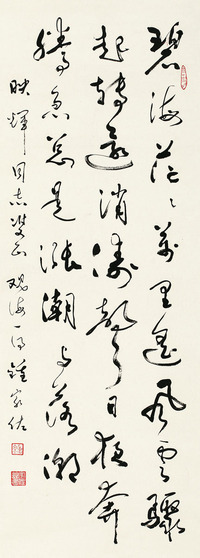 碧海茫茫万里遥风云骤
起转还消涛声日夜奔
腾急总是涨潮与落潮
映辉同志
观海一首 钟家佐